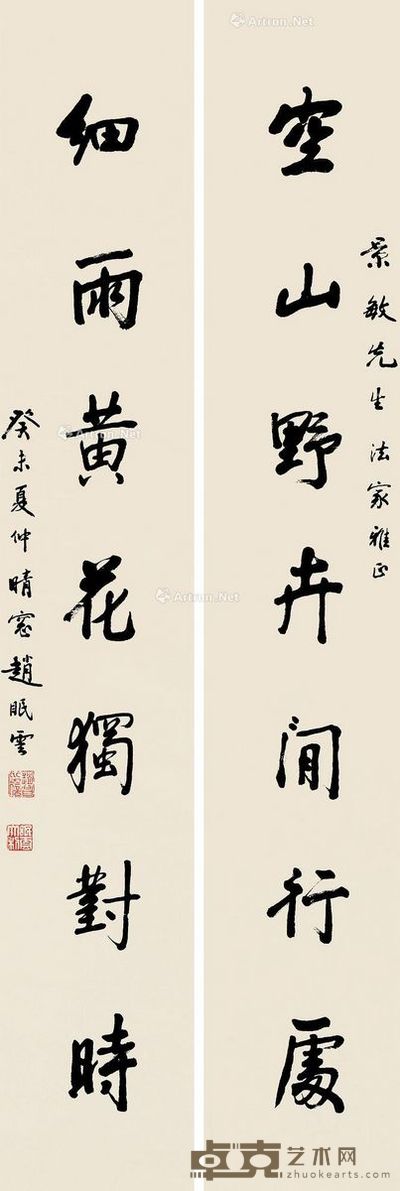 景敏先生法家雅正
空山野卉閒行處
細雨黃花獨對時
癸未夏仲晴窗趙眠雲
Artron.Net
Artron.Net
卓克艺术网
www.zhuokearts.com